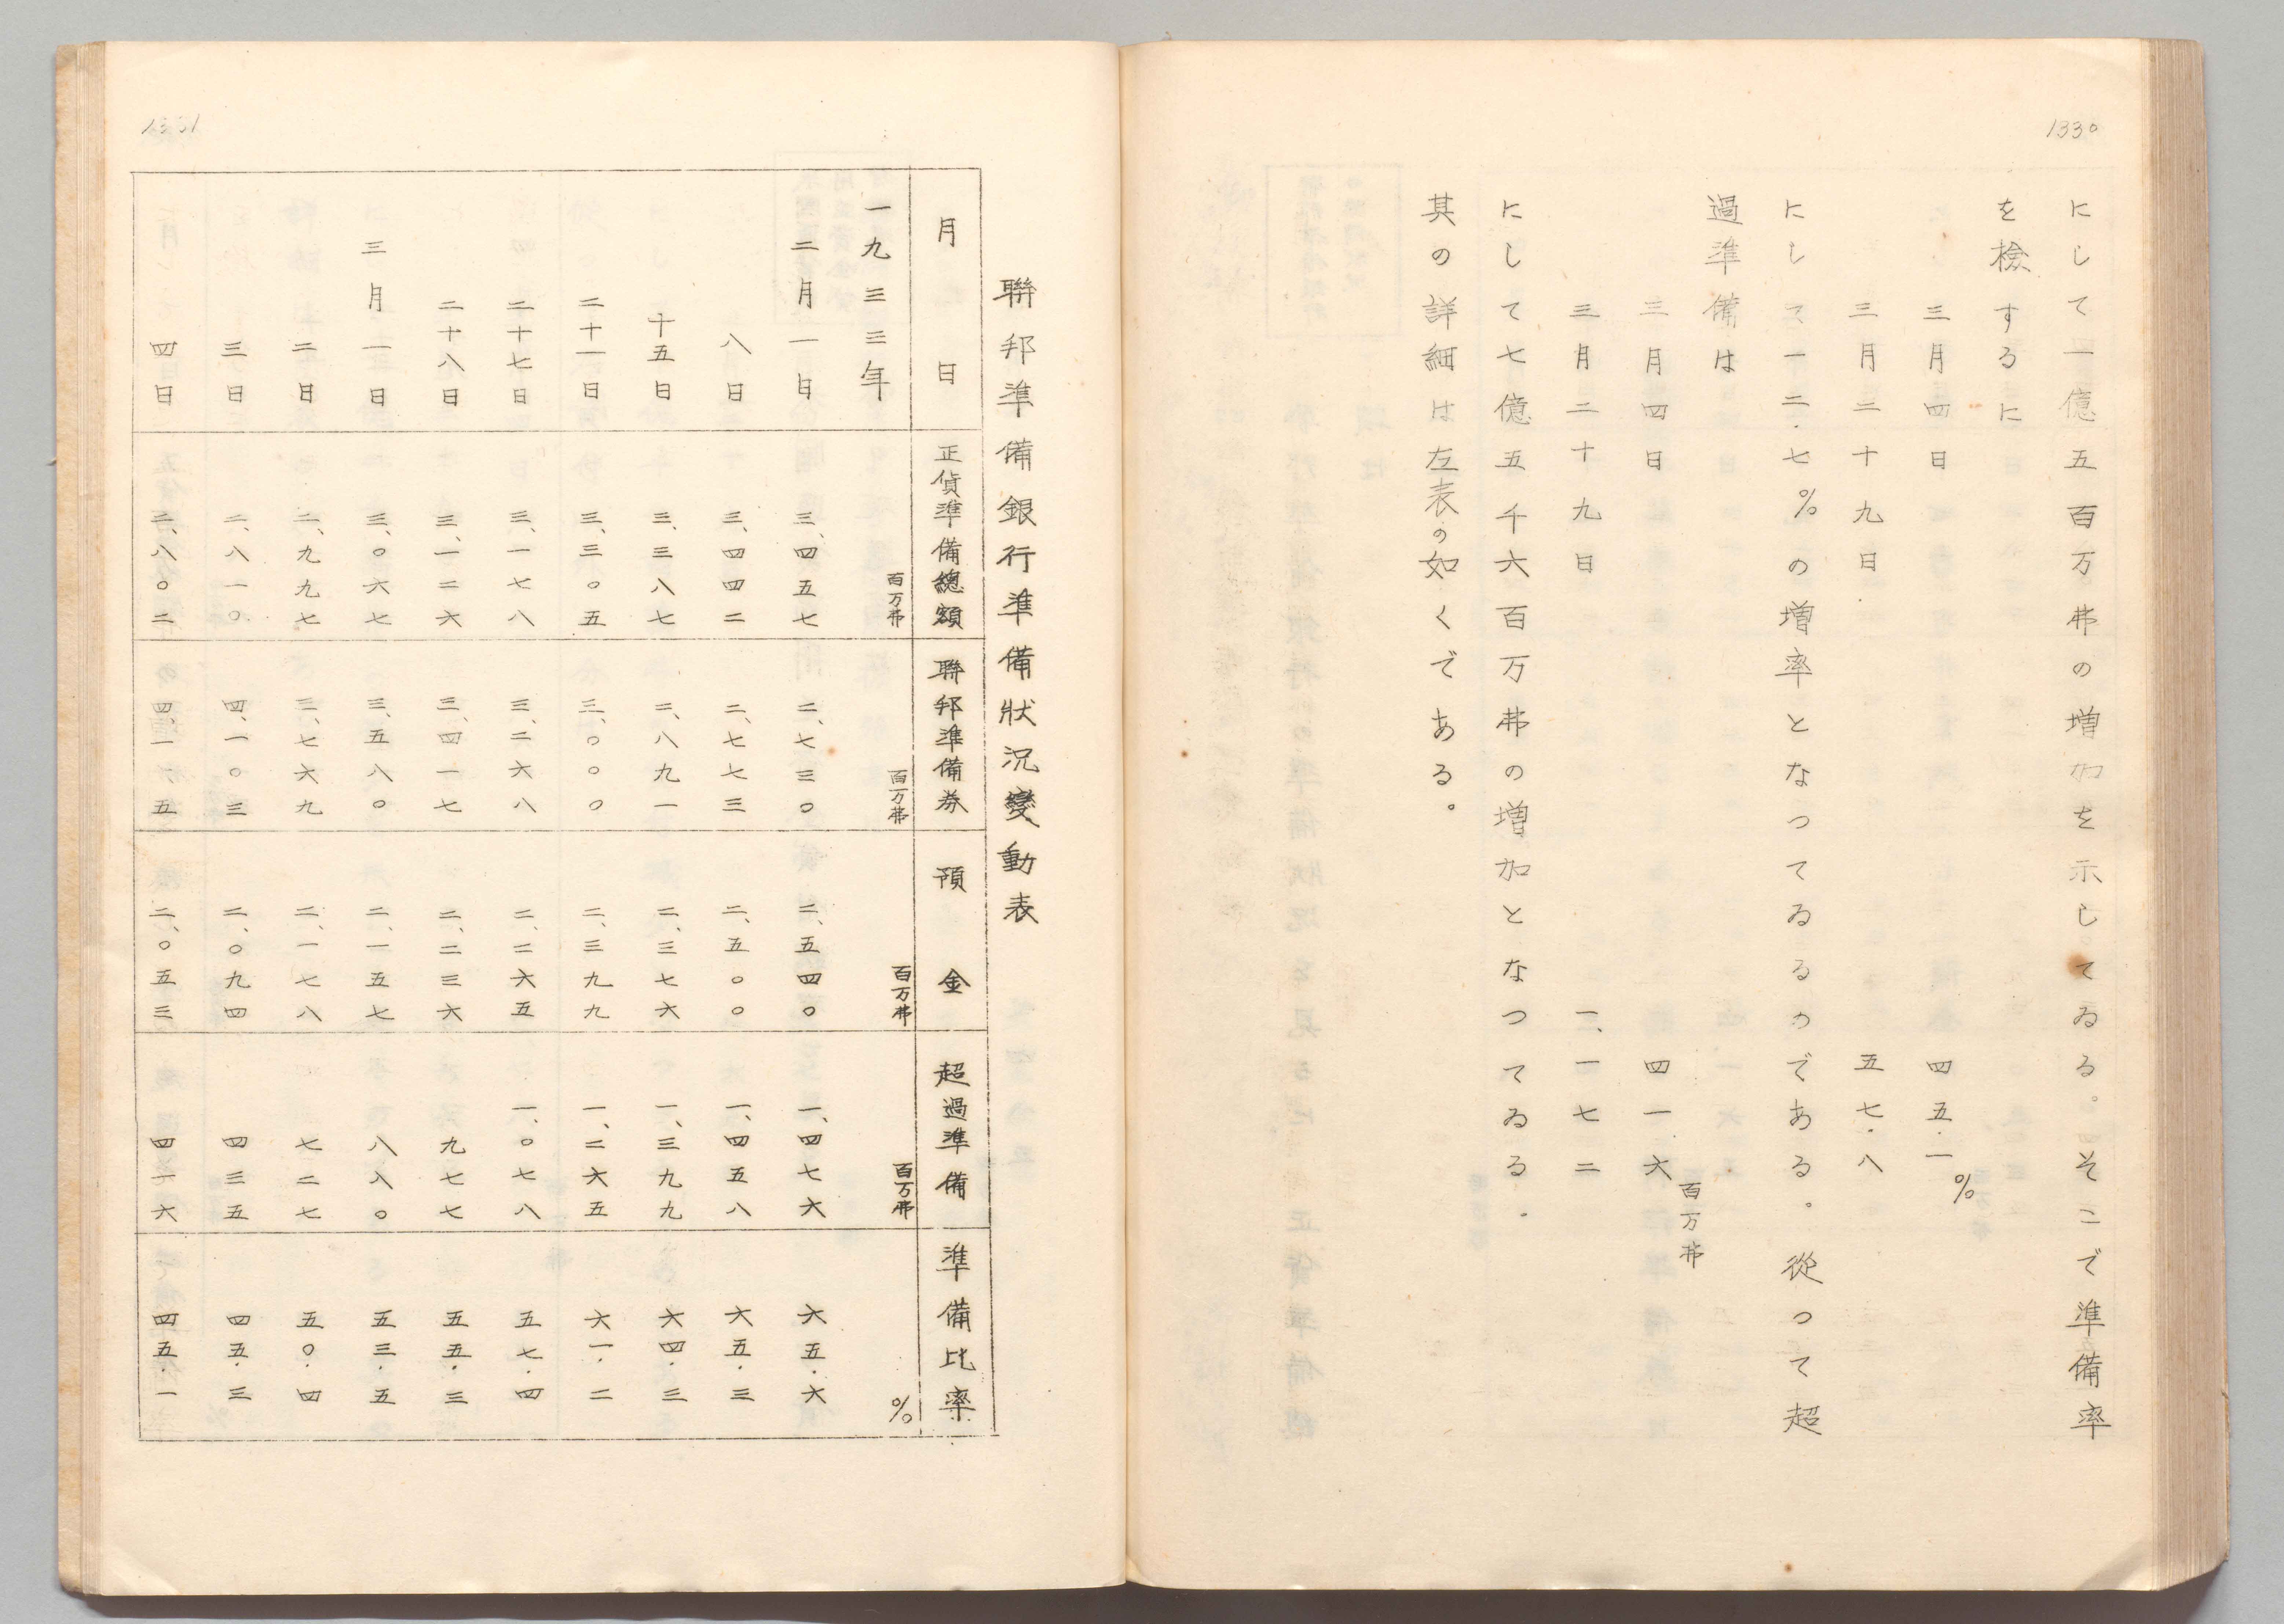 1330
にして一億五百万弗の増加を示してゐる。そこで準備率
を檢するに
%
三月四日 四五・一
三月二十九日 五七・八
にして一二・七%の増率となつてゐるのである。從つて超
過準備は
百万弗
三月四日 四一六
三月二十九日 一、一七二
にして七億五千六百万弗の増加となつてゐる。
其の詳細は左表の如くである。
1331
聯邦準備銀行準備狀況變動表
月日 正貨準備總額 聯邦準備券 預金 超過準備 準備比率
一九三三年 百万弗 百万弗 百万弗 百万弗 %
二月一日 三、四五七 二、七三〇 二、五四〇 一、四七六 六五・六
八日 三、四四二 二、七七三 二、五〇〇 一、四五八 六五・三
十五日 三、三八七 二、八九一 二、三七六 一、三九九 六四・三
二十一日 三、三〇五 三、〇〇〇 二、三九九 一、二六五 六一・二
二十七日 三、一七八 三、二六八 二、二六五 一、〇七八 五七・四
二十八日 三、一二六 三、四一七 二、二三六 九七七 五五・三
三月一日 三、〇六七 三、五八〇 二、一五七 八八〇 五三・五
二日 二、九九七 三、七六九 二、一七八 七二七 五〇・四
三日 二、八一〇 四、一〇三 二、〇九四 四三五 四五・三
四日 二、八〇二 四、一 五 二、〇五三 四一六 四五・一